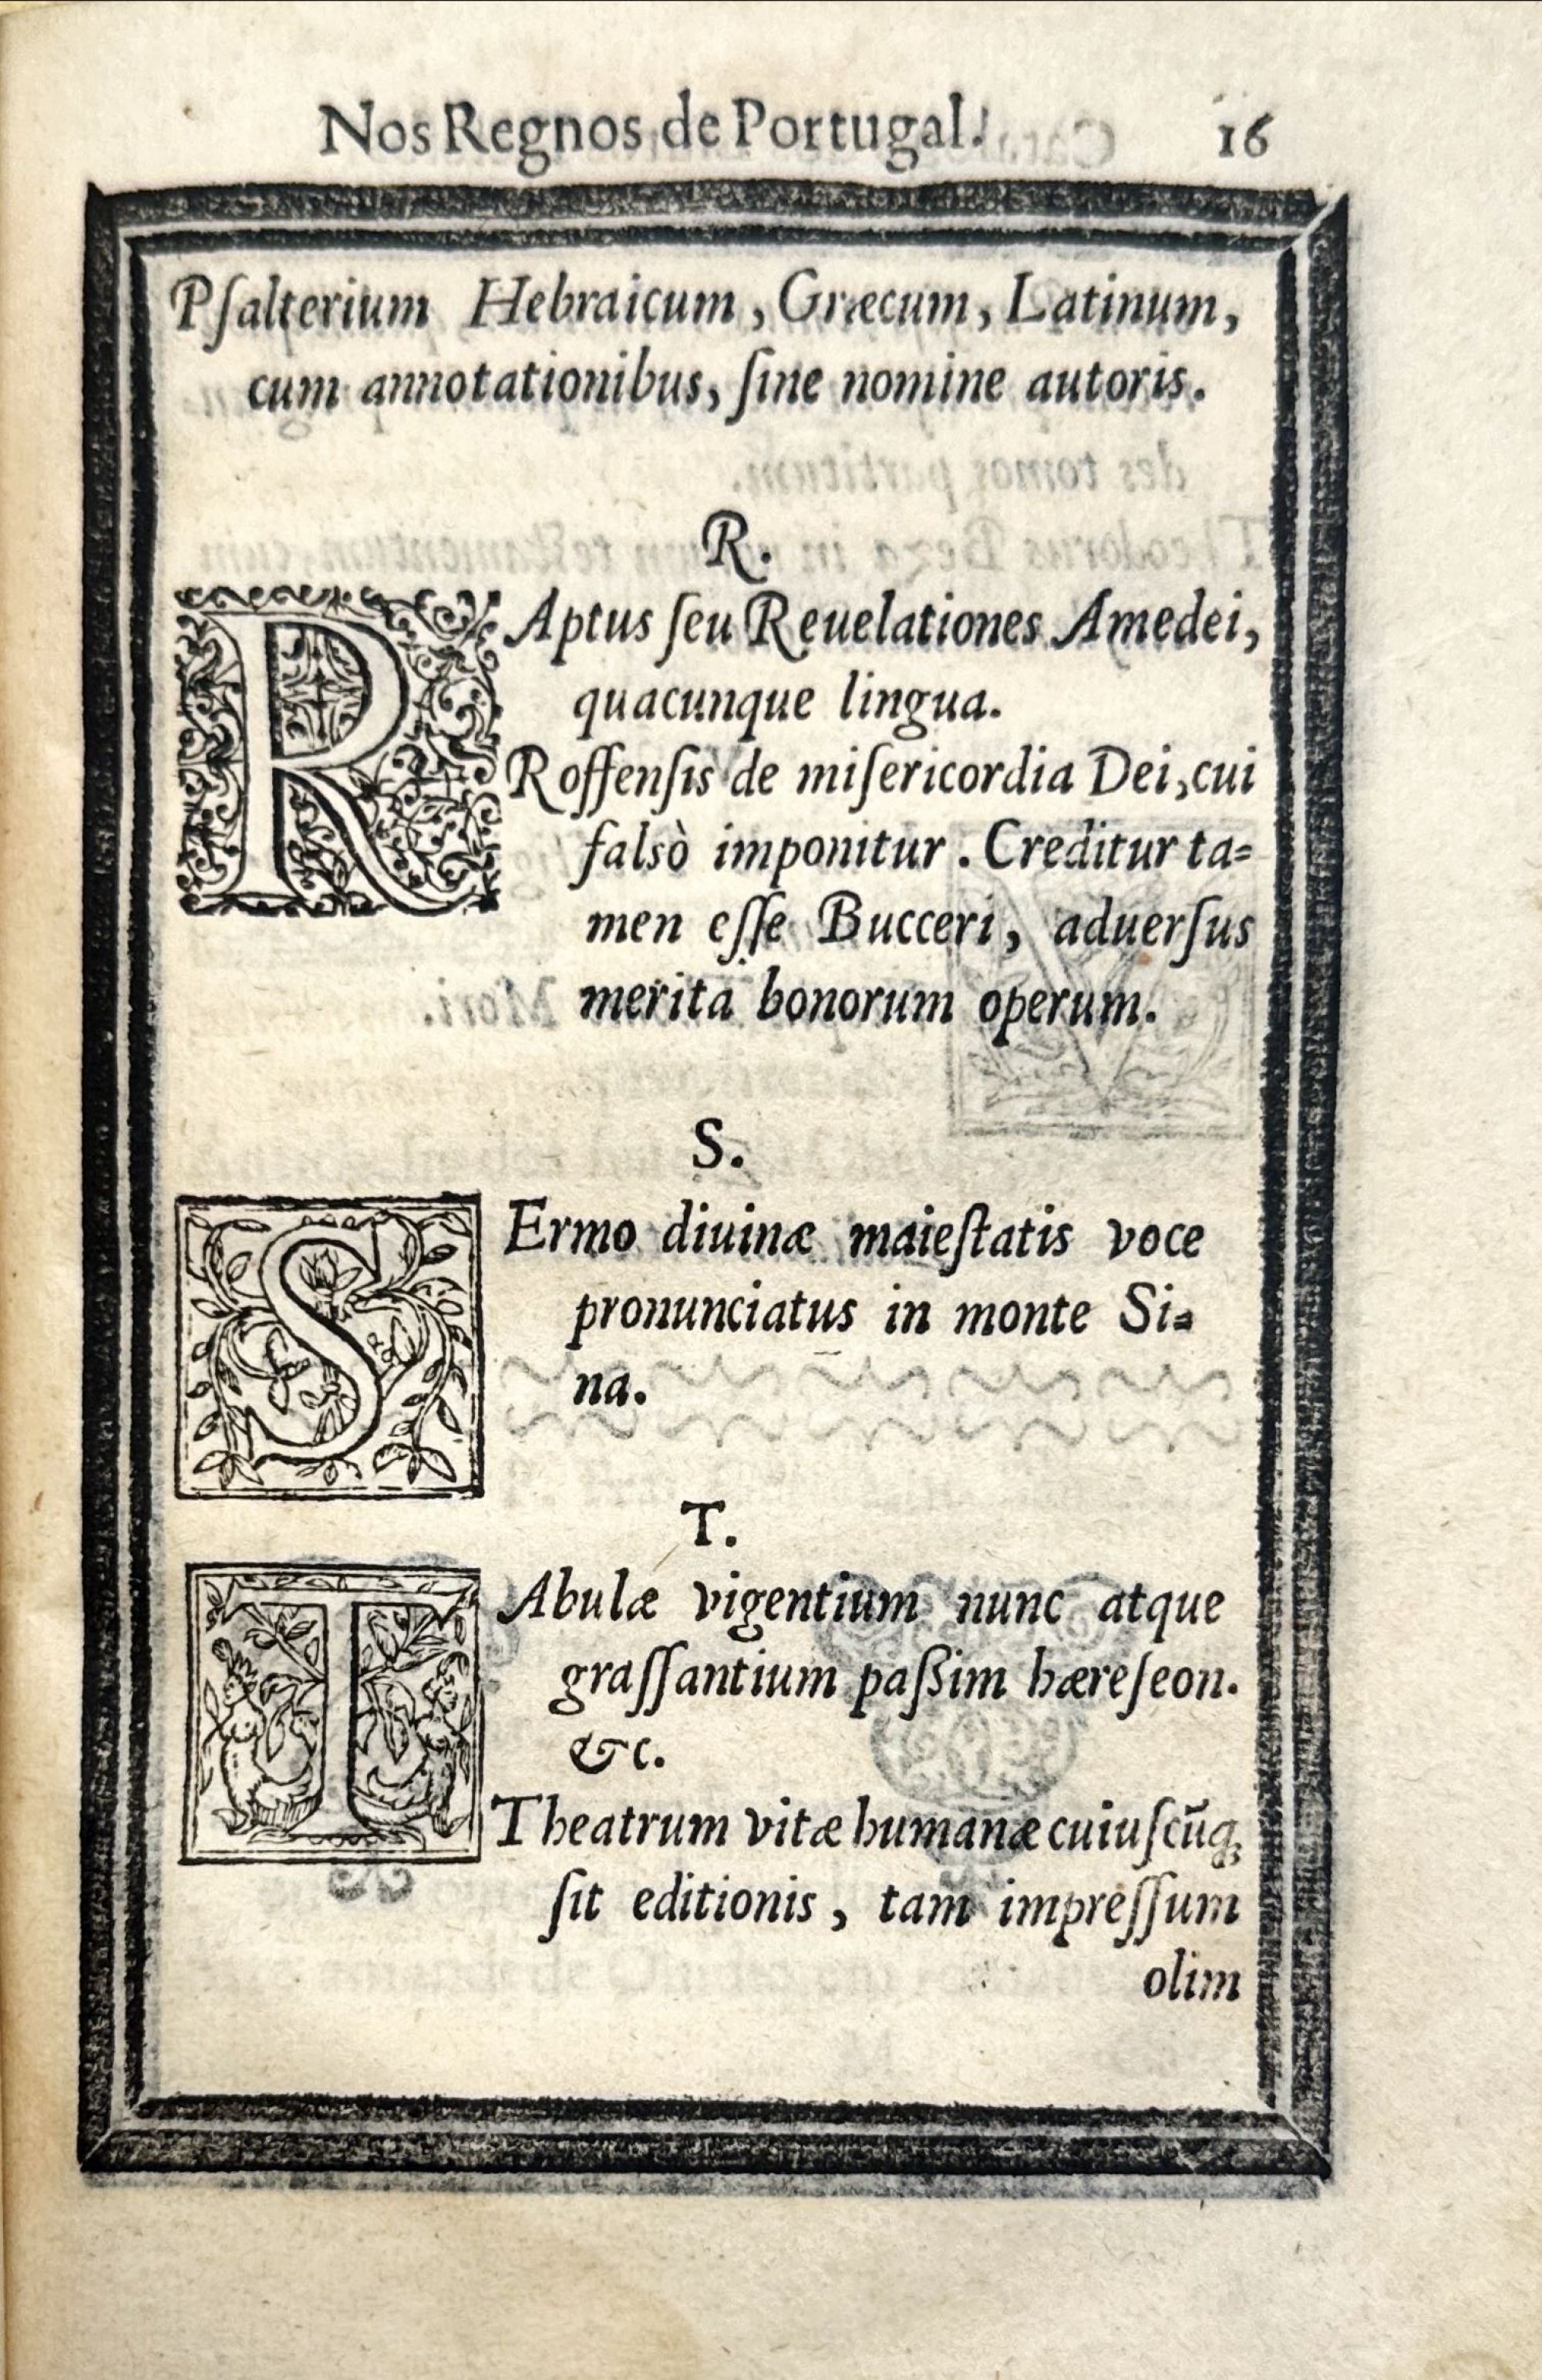 Nos Regnos de Portugal. 16
Pſalterium Hebraicum, Græcum, Latinum,
cum annotationibus, ſine nomine autoris.
R.
RAptus ſeu Reuelationes Amedei,
quacunque lingua.
Roffenſis de miſericordia Dei, cui
falsò imponitur. Creditur ta=
men eſſe Bucceri, aduerſus
merita bonorum operum.
S.
SErmo diuinæ maieſtatis voce
pronunciatus in monte Si=
na.
T.
TAbulæ vigentium nunc atque
graſſantium paſsim hæreſeon.
&c.
Theatrum vitæ humanæ cuiuſcũq;
ſit editionis, tam impreſſum
olim